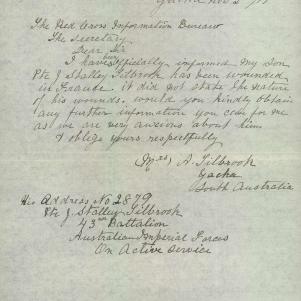 The Red Cross Information Bureau
The Secretary
Dear Sir
I have been officially informed my Son
Pte J Stalley Tilbrook has been wounded
in France. it did not state the nature
of his wounds. would you kindly obtain
any further information you can for me
as we are very anxious about him
& oblige yours respectfully
(Mrs) A. Tilbrook
Yacka
South Australia
His Address No 2879
Pte J. Stalley Tilbrook
43rd Battalion
Australian Imperial Forces
On Active Service